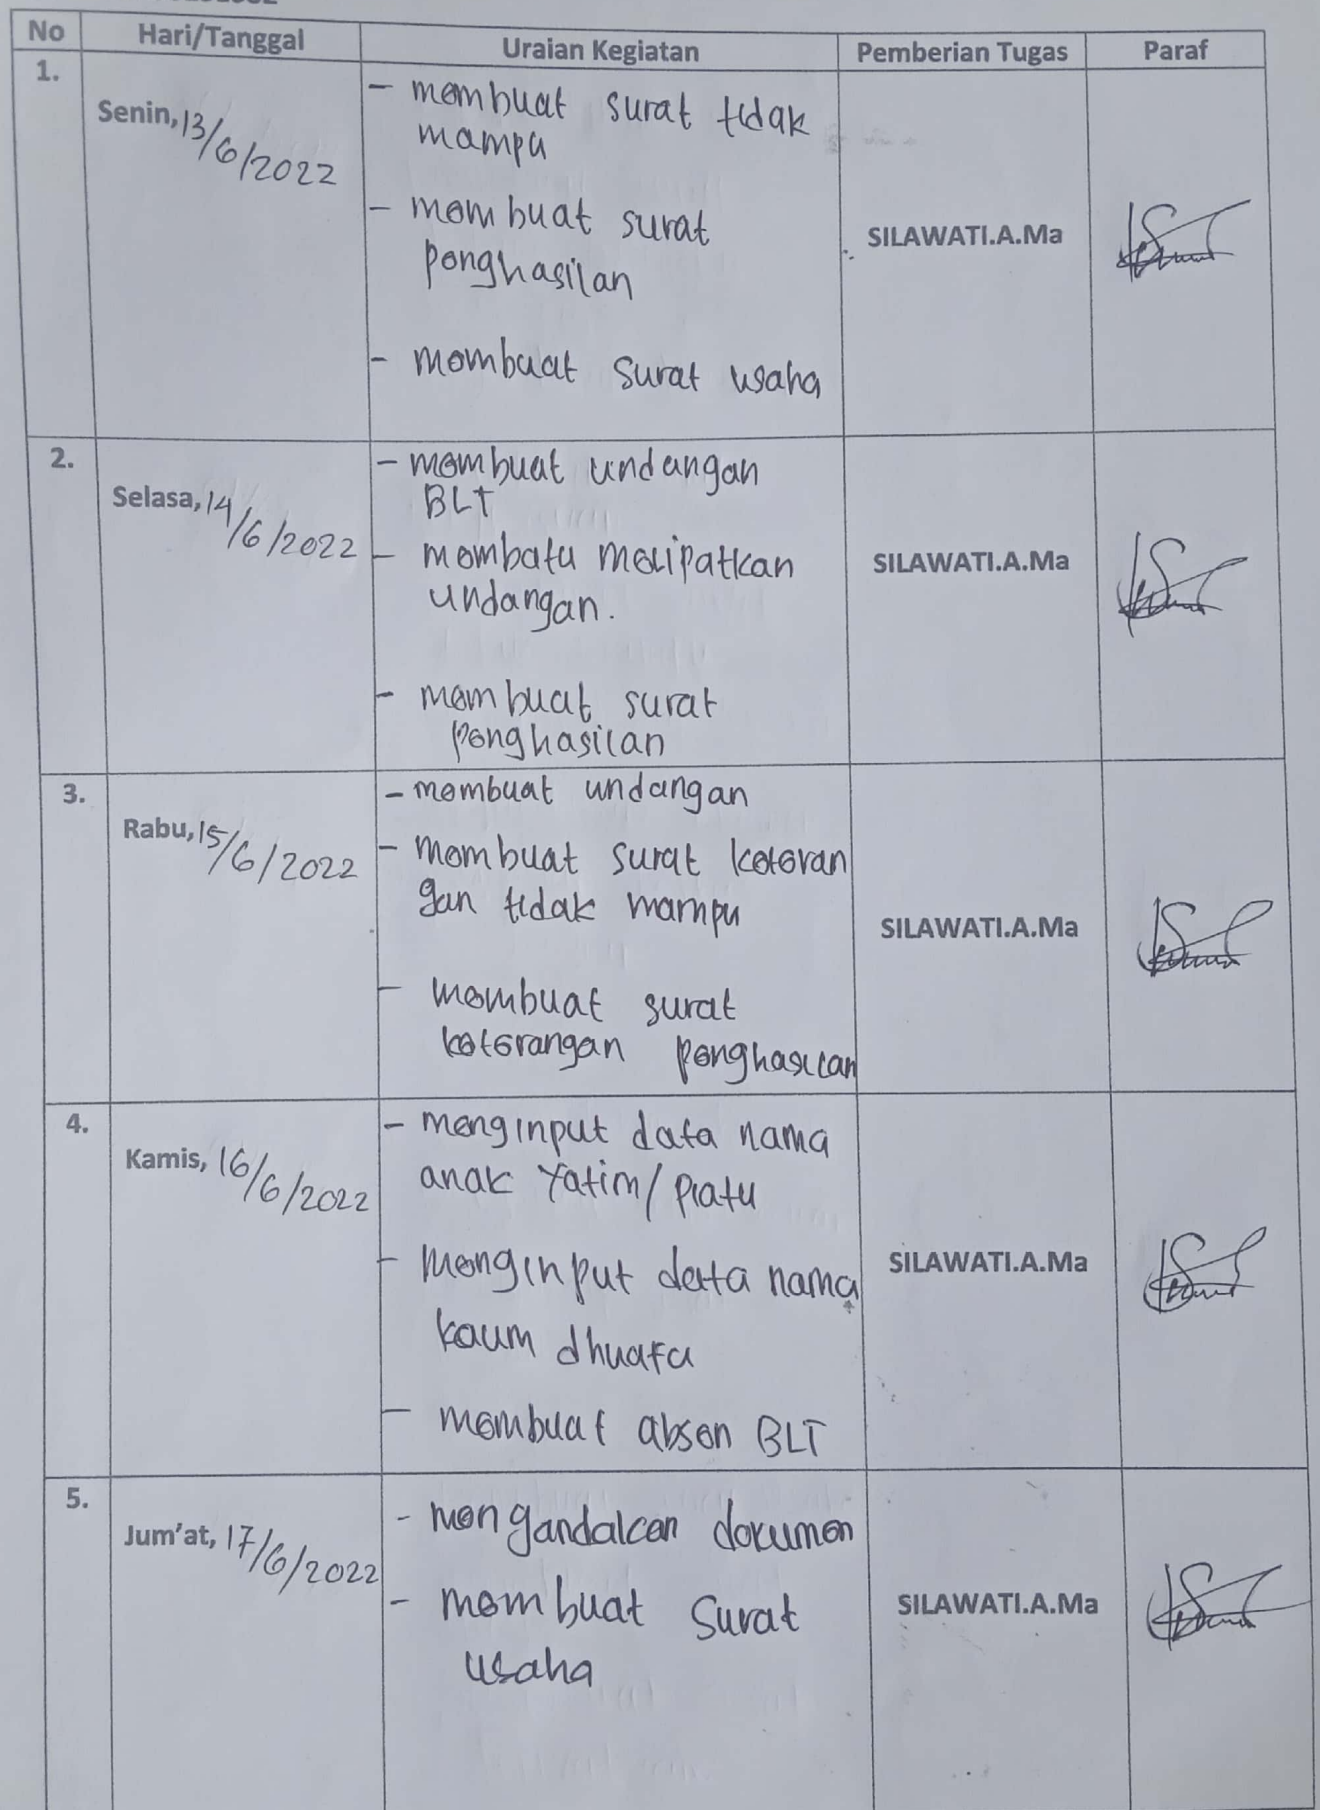 No Hari/Tanggal Uraian Kegiatan Pemberian Tugas Paraf
1.
Senin, 13/6/2022
- membuat surat tidak
mampu
- membuat surat
penghasilan
- membuat surat usaha
SILAWATI.A.Ma
2.
Selasa, 14/6/2022
- membuat undangan
BLT
- membatu melipatkan
undangan.
- membuat surat
penghasilan
SILAWATI.A.Ma
3.
Rabu, 15/6/2022
- membuat undangan
- membuat surat keteran
gan tidak mampu
- membuat surat
keterangan penghasilan
SILAWATI.A.Ma
4.
Kamis, 16/6/2022
- menginput data nama
anak Yatim/piatu
- menginput data nama
kaum dhuafa
- membuat absen BLT
SILAWATI.A.Ma
5.
Jum'at, 17/6/2022
- mengandalkan dokumen
- membuat surat
usaha
SILAWATI.A.Ma